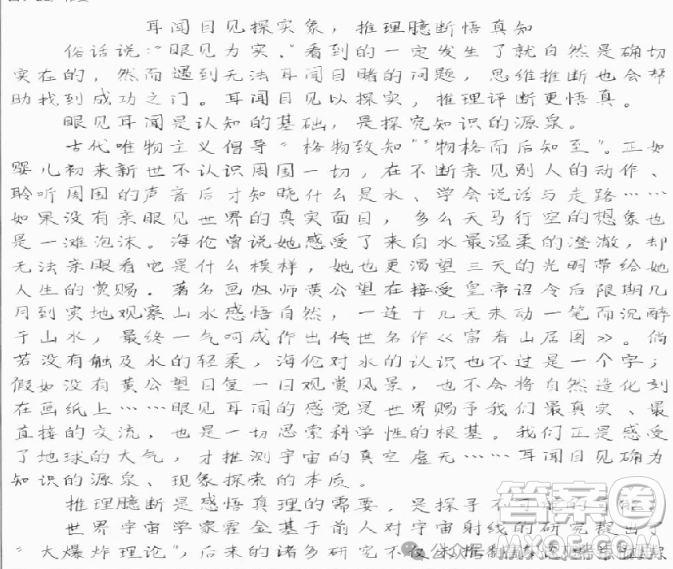 耳闻目见探实象，推理臆断悟真知
俗话说："眼见为实."看到的一定发生了就自然是确切
实在的，然而遇到无法耳闻目睹的问题，思维推断也会帮
助找到成功之门。耳闻目见以探实，推理评断更悟真。
眼见耳闻是认知的基础，是探究知识的源泉。
古代唯物主义倡导"格物致知""物格而后知至"。正如
婴儿初来新世不认识周围一切，在不断亲见别人的动作、
聆听周围的声音后才知晓什么是水、学会说话与走路……
如果没有亲眼见世界的真实面目，多么天马行空的想象也
是一滩泡沫。海伦曾说她感受了来自水最温柔的澄澈，却
无法亲眼看它是什么模样，她也更渴望三天的光明带给她
人生的赏赐。著名画师黄公望在接受皇帝诏令后限期几
月到实地观察山水感悟自然，一连十几天未动一笔而沉醉
于山水，最终一气呵成作出传世名作《富春山居图》。倘
若没有触及水的轻柔，海伦对水的认识也不过是一个字；
假如没有黄公望日复一日观赏风景，也不会将自然造化刻
在画纸上……眼见耳闻的感觉是世界赐予我们最真实、最
直接的交流，也是一切思索科学性的根基。我们正是感受
了地球的大气，才推测宇宙的真空虚无……耳闻目见确为
知识的源泉、现象探索的本质。
推理臆断是感悟真理的需要，是探寻不
世界宇宙学家霍金基于前人对宇宙射线的研究提出
"大爆炸理论"，后来的诸多研究不仅
答案圈
MXQE.COM
公众号